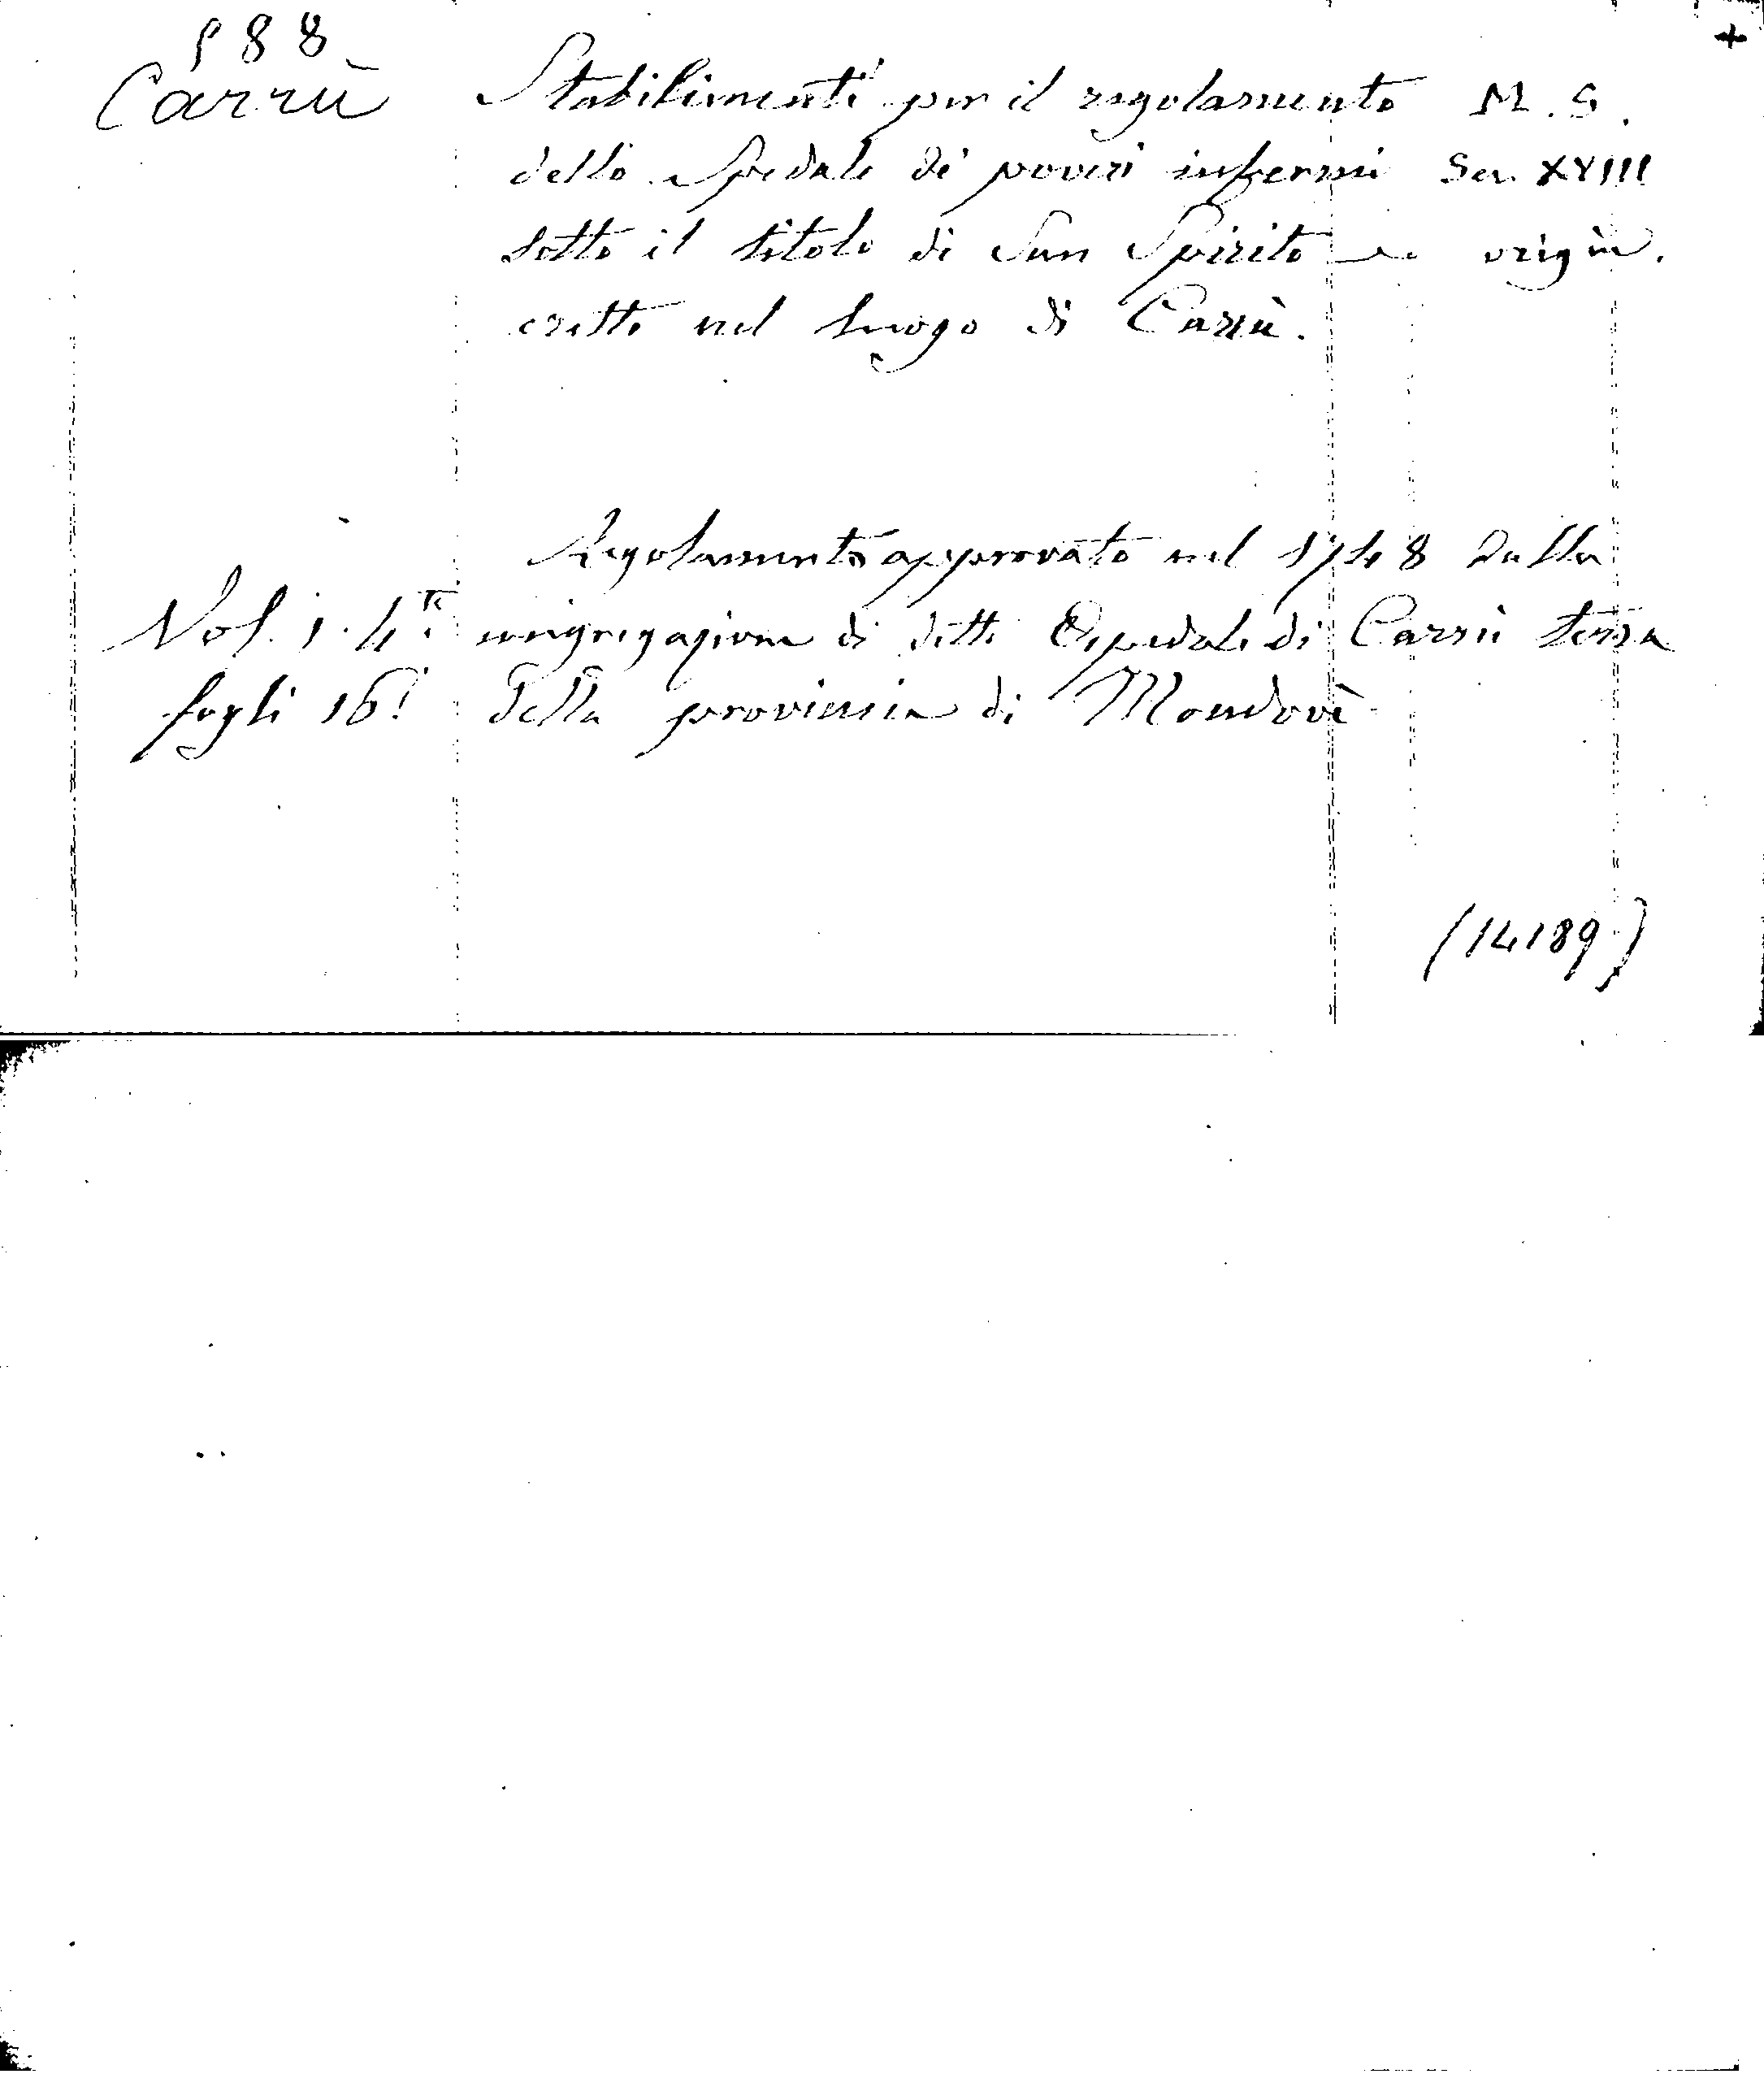 988
Carrù
Stabilimenti per il regolamento M. S.
dello Spedale di poveri infermi Sec. XVIII
sotto il titolo di San Spirito origin.
eretto nel luogo di Carrù.
Regolamento approvato nel 1748 dalla
Vol. 1. 4.to congregazione di detto Ospedale di Carrù terra
fogli 16. della provincia di Mondovì
(14189)